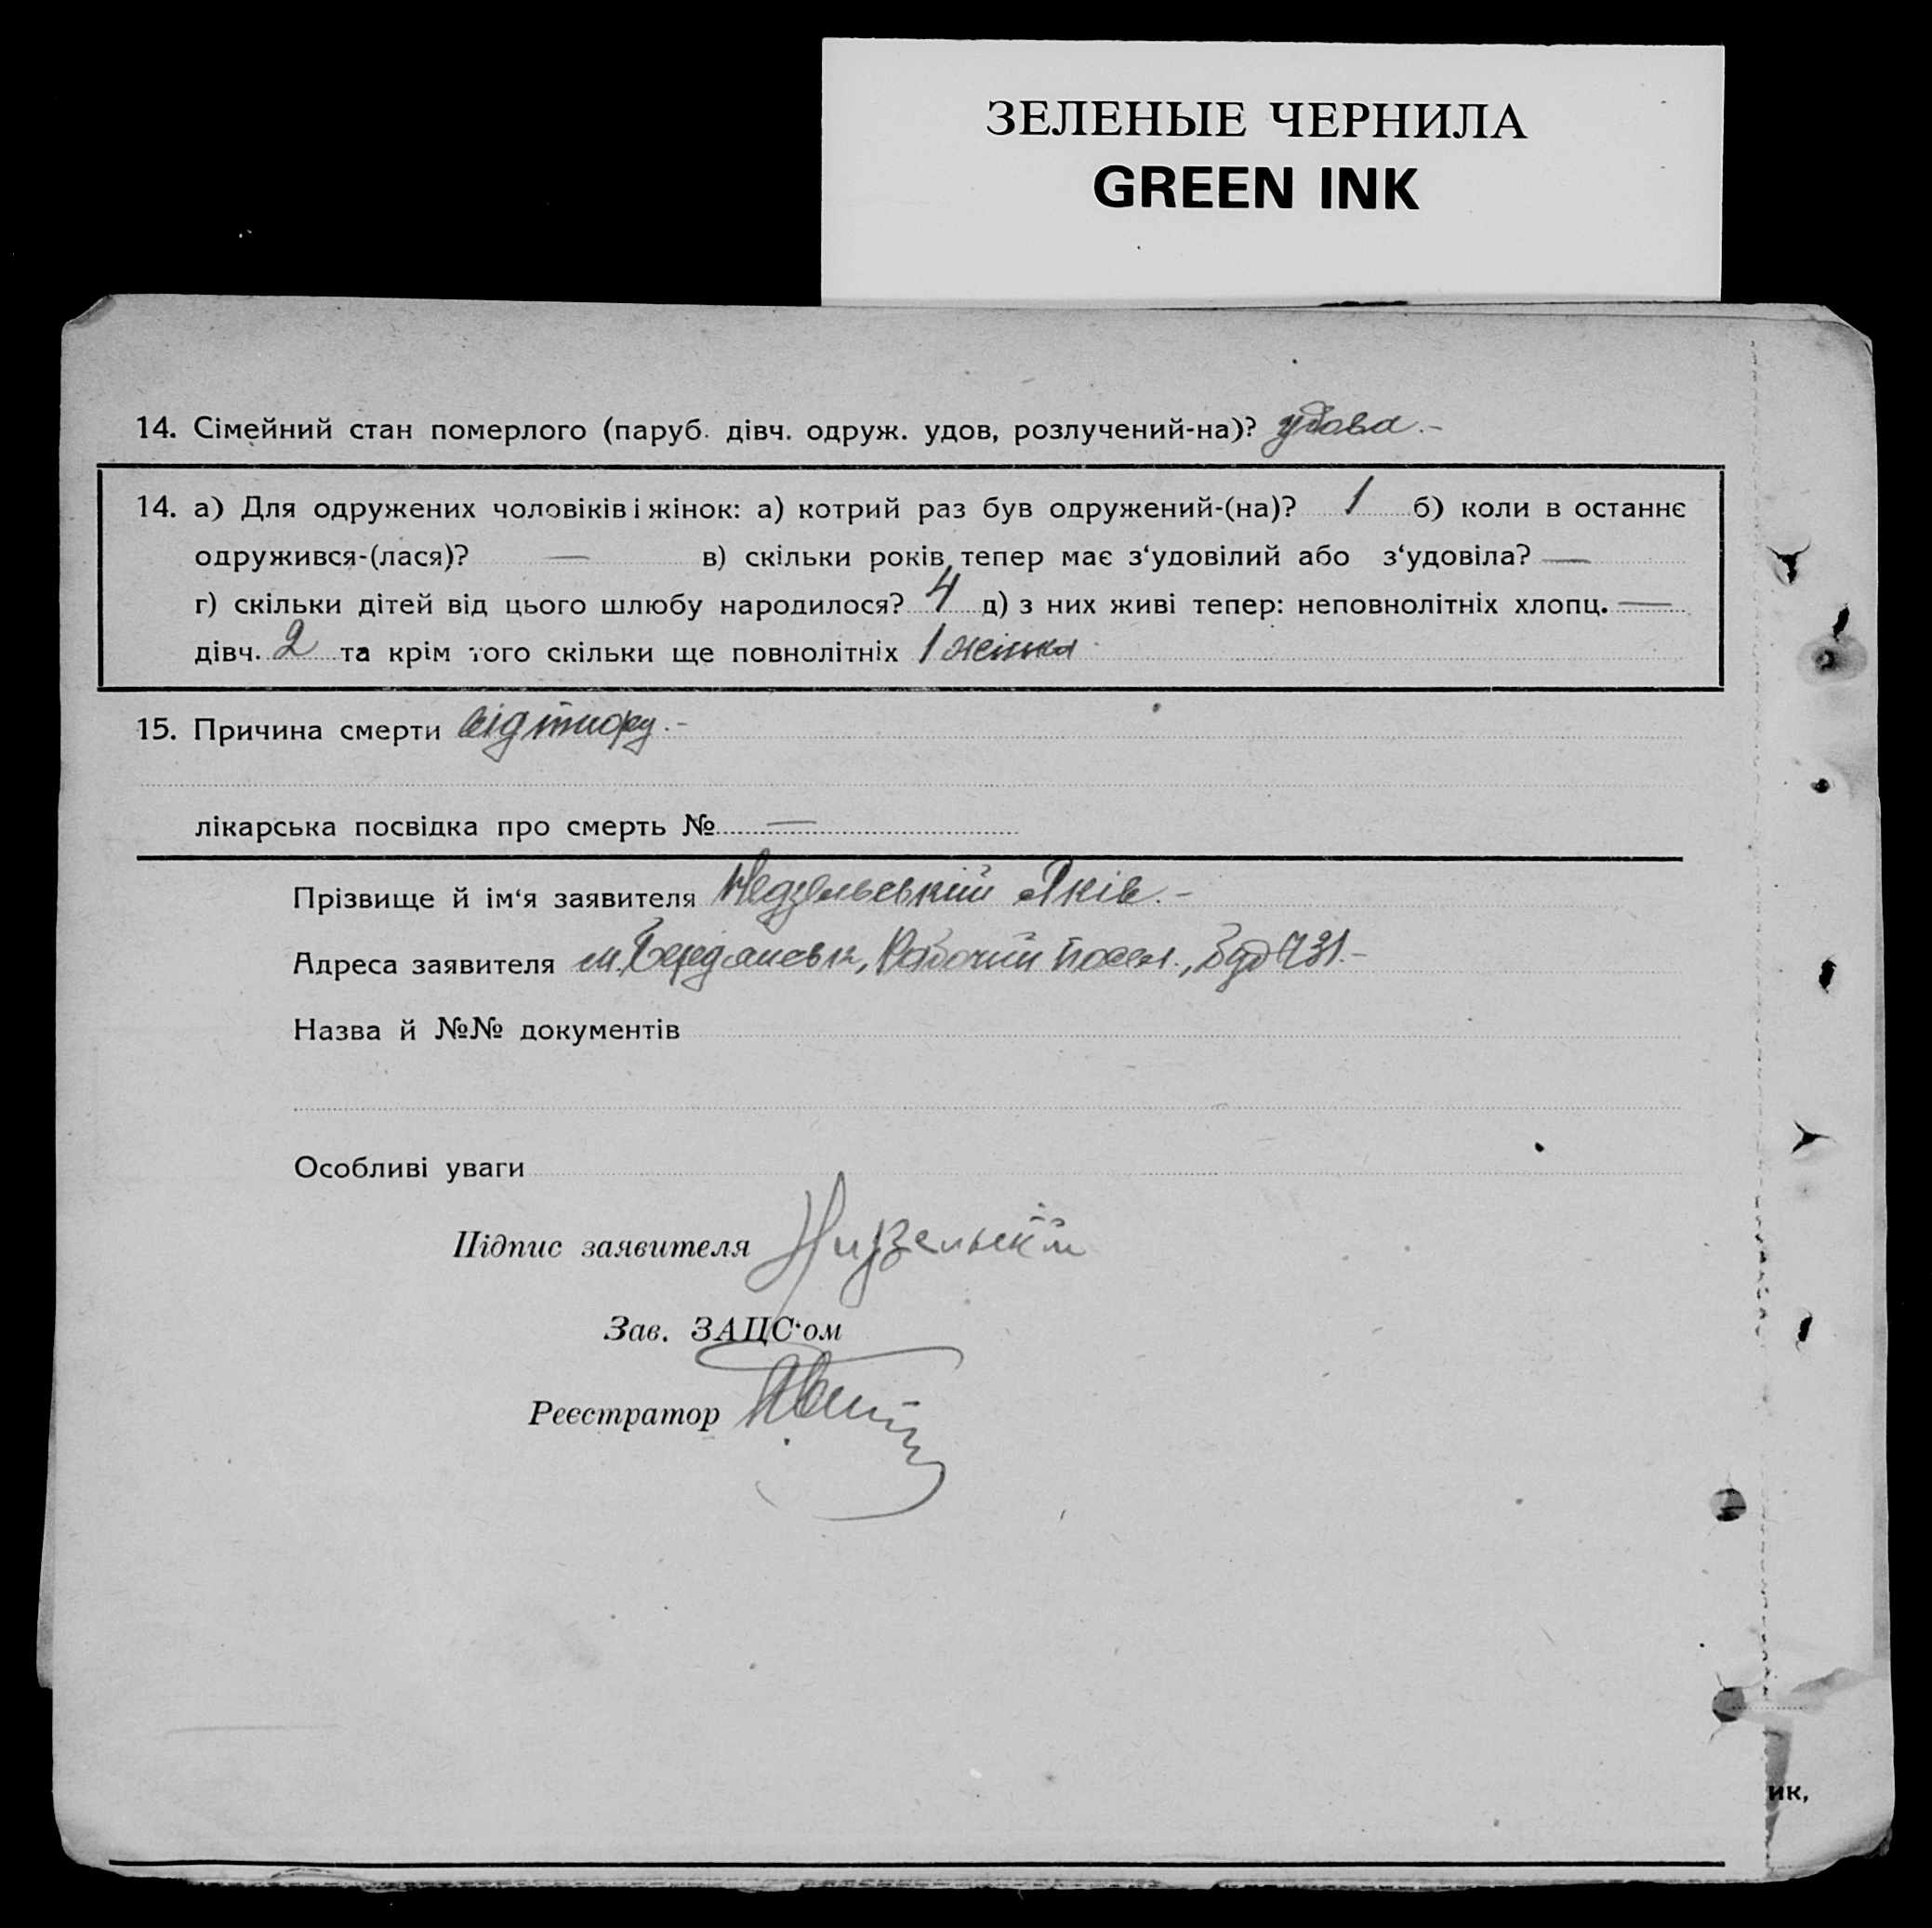 ЗЕЛЕНЫЕ ЧЕРНИЛА
GREEN INK
14. Сімейний стан померлого (паруб. дівч. одруж. удов, розлучений-на)? удова.-
14. а) Для одружених чоловіків і жінок: а) котрий раз був одружений-(на)? 1 б) коли в останнє
одружився-(лася)? — в) скільки років тепер має з‘удовілий або з‘удовіла? —
г) скільки дітей від цього шлюбу народилося? 4 д) з них живі тепер: неповнолітніх хлопц. —
дівч. 2 та крім того скільки ще повнолітніх 1 жінка
15. Причина смерти від
лікарська посвідка про смерть № —
Прізвище й ім‘я заявителя Недзельський Яків.-
Адреса заявителя м. Бердянськ, Робочий посел., Буд 731.-
Назва й №№ документів
Особливі уваги
Підпис заявителя
Зав. ЗАЦС‘ом
Реєстратор
ик,